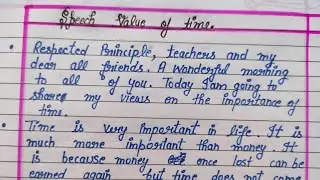 Speech Value of time.
• Respected Principle, teachers and my
dear all friends. A wonderful morning
to all of you. Today I am going to
share my views on the importance of
time.
• Time is very important in life. It is
much more important than money. It
is because money once lost can be
earned again but time does not come